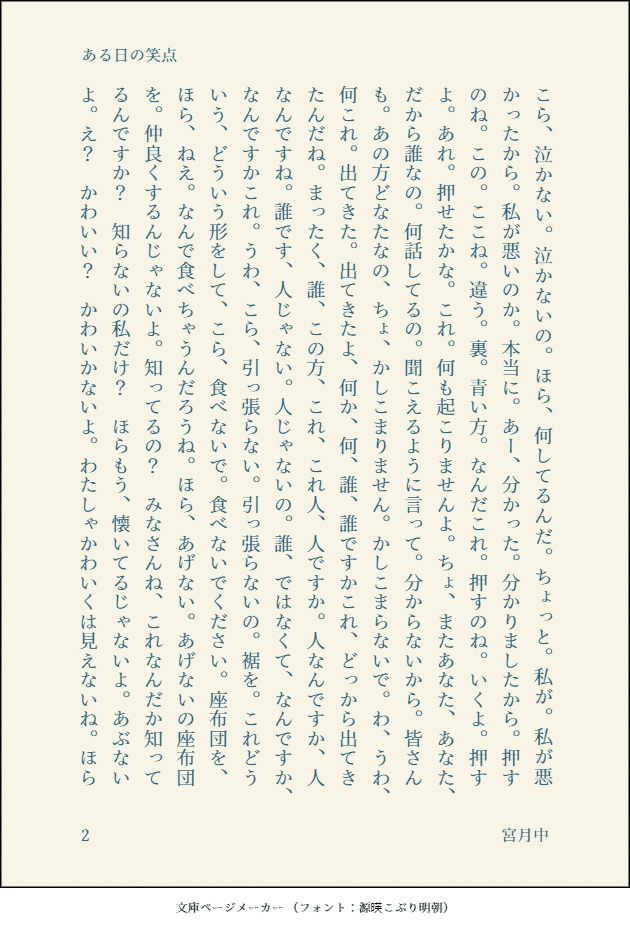 ある日の笑点
こら、泣かない。泣かないの。ほら、何してるんだ。ちょっと。私が。私が悪
かったから。私が悪いのか。本当に。あー、分かった。分かりましたから。押す
のね。この。ここね。違う。裏。青い方。なんだこれ。押すのね。いくよ。押す
よ。あれ。押せたかな。これ。何も起こりませんよ。ちょ、またあなた、あなた、
だから誰なの。何話してるの。聞こえるように言って。分からないから。皆さん
も。あの方どなたなの、ちょ、かしこまりません。かしこまらないで。わ、うわ、
何これ。出てきた。出てきたよ、何か、何、誰、誰ですかこれ、どっから出てき
たんだね。まったく、誰、この方、これ、これ人、人ですか。人なんですか、人
なんですね。誰です、人じゃない。人じゃないの。誰、ではなくて、なんですか、
なんですかこれ。うわ、こら、引っ張らない。引っ張らないの。裾を。これどう
いう、どういう形をして、こら、食べないで。食べないでください。座布団を、
ほら、ねえ。なんで食べちゃうんだろうね。ほら、あげない。あげないの座布団
を。仲良くするんじゃないよ。知ってるの？　みなさんね、これなんだか知って
るんですか？　知らないの私だけ？　ほらもう、懐いてるじゃないよ。あぶない
よ。え？　かわいい？　かわいかないよ。わたしゃかわいくは見えないね。ほら
2
宮月中
文庫ページメーカー （フォント：源暎こぶり明朝）